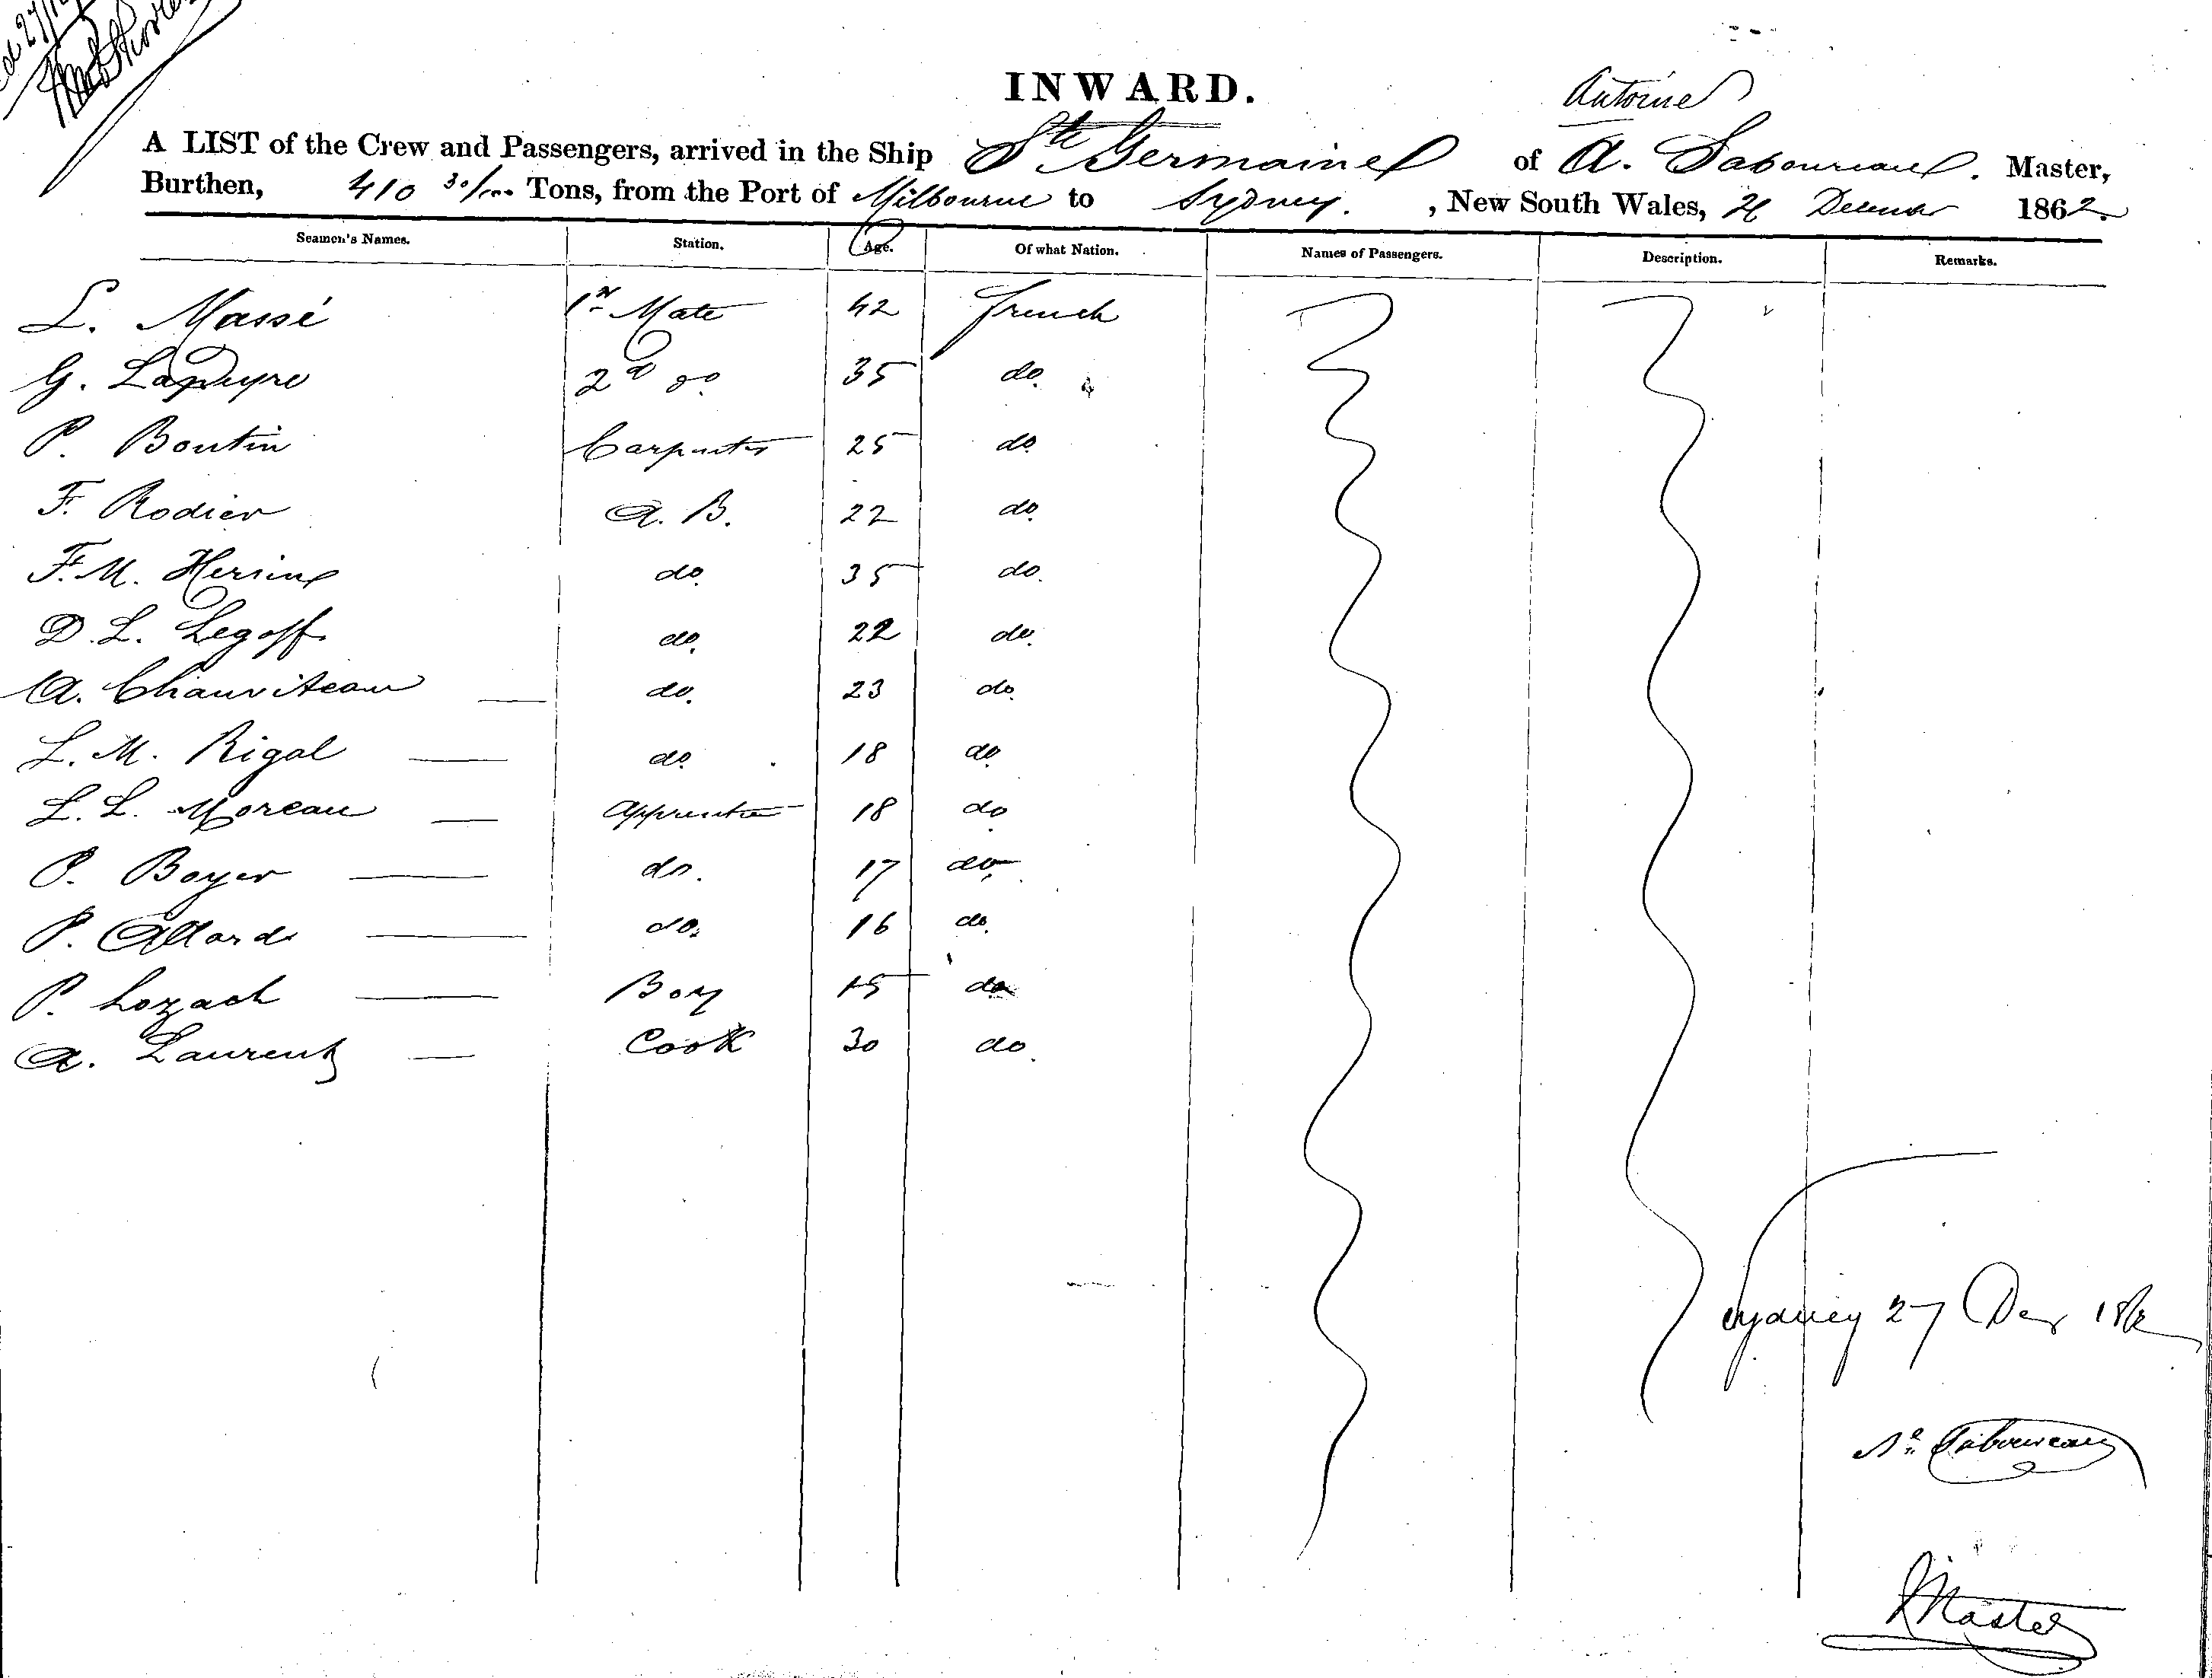 27/12
INWARD.
Antoine
A LIST of the Crew and Passengers, arrived in the Ship Ste Germaine of A. Taboureau. Master,
Burthen, 410 30/100 Tons, from the Port of Milbourne to Sydney. , New South Wales, 26 December 1862.
Seamen's Names. Station. Age. Of what Nation. Names of Passengers. Description. Remarks.
L. Massé 1st Mate 42 French
G. Lapeyre 2d do. 35 do.
P. Boutin Carpenter 25 do
F. Rodier A. B. 22 do.
F. M. Herine do. 35 do.
D. L. Legoff do. 22 do.
A. Chauviteau do. 23 do.
L. M. Rigal do. 18 do
L. L. Moreau Apprentice 18 do
P. Boyer do. 17 do.
P. Allard do. 16 do.
P. Lozach Boy 15 do
A. Laurent Cook 30 do.
Sydney 27 Der 1862
Ne. Taboureau
Master